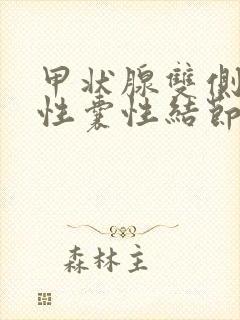 甲状腺雙側
性囊性結節
森林主